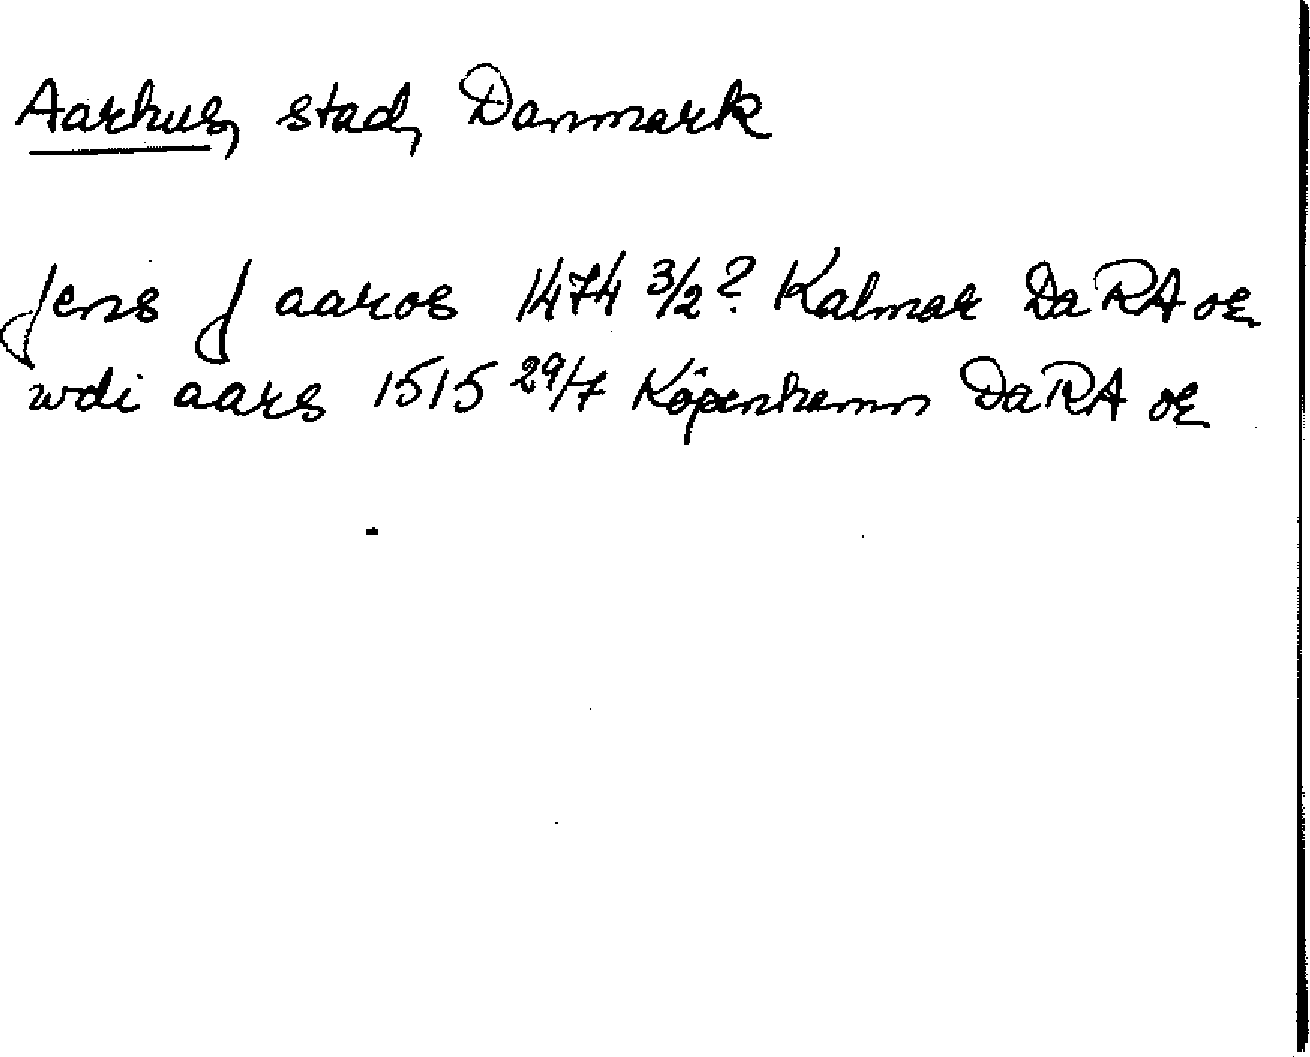 Aarhus, stad, Danmark
Jens J aaros 1474 3/2? Kalmar DaRA or
wdi aars 1515 29/7 Köpenhamn DaRA or